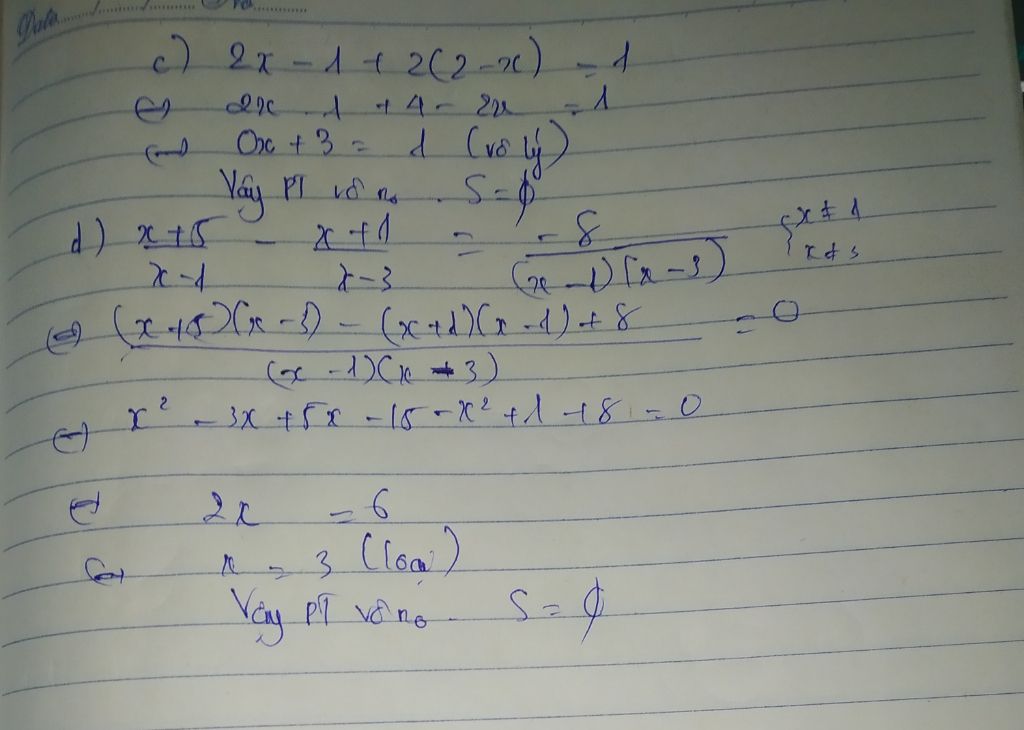 Date ....../....../...... No ............
c) 2x - 1 + 2(2 - x) = 1
⇔ 2x - 1 + 4 - 2x = 1
⇔ 0x + 3 = 1 (vô lý)
Vậy PT vô no . S = ∅
d) (x+5)/(x-1) - (x+1)/(x-3) = -8/((x-1)(x-3)) { x ≠ 1
x ≠ 3
⇔ ((x+5)(x-3) - (x+1)(x-1) + 8)/((x-1)(x-3)) = 0
⇔ x² - 3x + 5x - 15 - x² + 1 + 8 = 0
⇔ 2x = 6
⇔ x = 3 (loại)
Vậy PT vô no . S = ∅